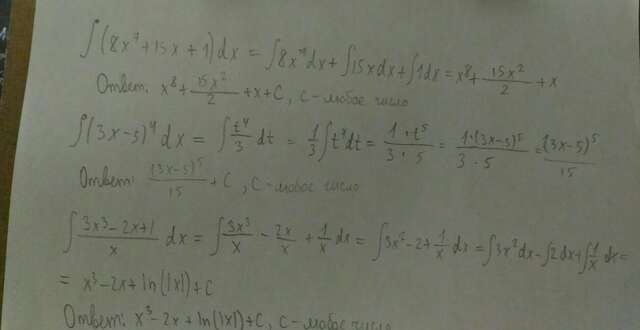 ∫(8x⁷+15x+1)dx = ∫8x⁷dx+∫15xdx+∫1dx = x⁸+ 15x²/2 + x
Ответ: x⁸+ 15x²/2 +x+C, C-любое число
∫(3x-5)⁴dx = ∫ t⁴/3 dt = 1/3 ∫t⁴dt = 1·t⁵/3·5 = 1·(3x-5)⁵/3·5 = (3x-5)⁵/15
Ответ: (3x-5)⁵/15 + C, C-любое число
∫ 3x³-2x+1/x dx = ∫ 3x³/x - 2x/x + 1/x dx = ∫3x²-2+ 1/x dx = ∫3x²dx-∫2dx+∫ 1/x dx =
= x³-2x+ln(|x|)+C
Ответ: x³-2x+ln(|x|)+C, C-любое число